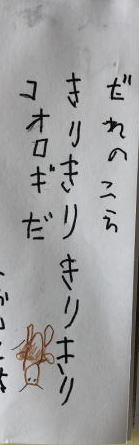 だれのこえ
きりきりきりきり
コオロギだ